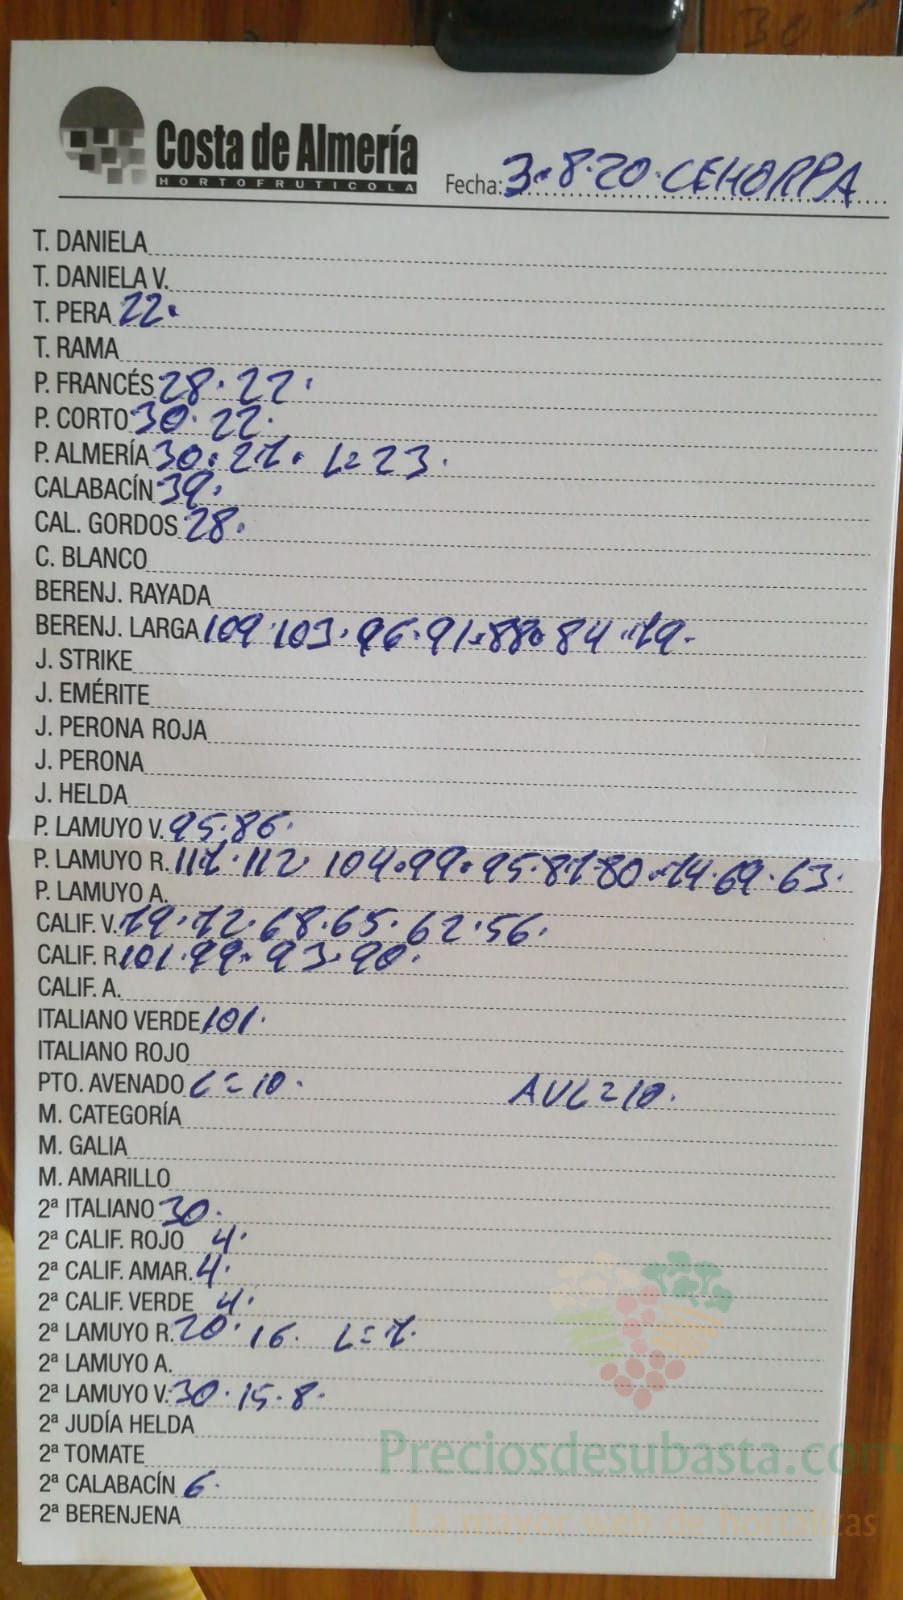 30
Costa de Almería
HORTOFRUTICOLA
Fecha: 3.8.20. CEHORPA
T. DANIELA
T. DANIELA V.
T. PERA 22.
T. RAMA
P. FRANCÉS 28. 22.
P. CORTO 30. 22.
P. ALMERÍA 30. 27. L=23.
CALABACÍN 39.
CAL. GORDOS 28.
C. BLANCO
BERENJ. RAYADA
BERENJ. LARGA 109 103. 96. 91. 88. 84. 79.
J. STRIKE
J. EMÉRITE
J. PERONA ROJA
J. PERONA
J. HELDA
P. LAMUYO V. 95. 86.
P. LAMUYO R. 117. 112 104. 99. 95. 87. 80. 74. 69. 63.
P. LAMUYO A.
CALIF. V. 79. 72. 68. 65. 62. 56.
CALIF. R 101. 99. 93. 90.
CALIF. A.
ITALIANO VERDE 101.
ITALIANO ROJO
PTO. AVENADO L=10. AVL=10.
M. CATEGORÍA
M. GALIA
M. AMARILLO
2ª ITALIANO 30.
2ª CALIF. ROJO 4.
2ª CALIF. AMAR. 4.
2ª CALIF. VERDE 4.
2ª LAMUYO R. 20. 16. L=7.
2ª LAMUYO A.
2ª LAMUYO V. 30. 15. 8.
2ª JUDÍA HELDA
2ª TOMATE
2ª CALABACÍN 6.
2ª BERENJENA
Preciosdesubasta.com
La mayor web de hortalizas